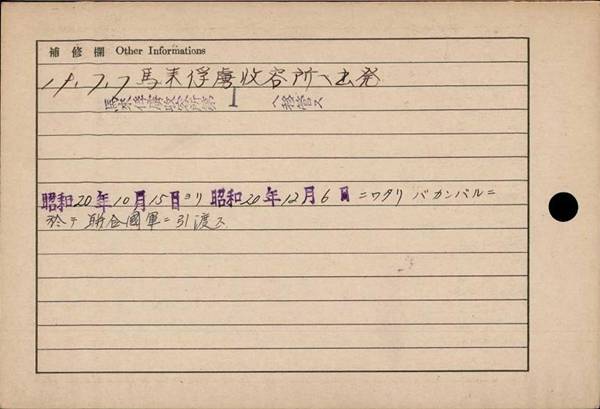 補修欄 Other Informations
19.7.7 馬来俘虜收容所ヘ出発
馬来俘虜收容所第 1 ヘ移管ス
昭和20年10月15日ヨリ昭和20年12月6日ニワタリ バカンバルニ
於テ聯合國軍ニ引渡ス